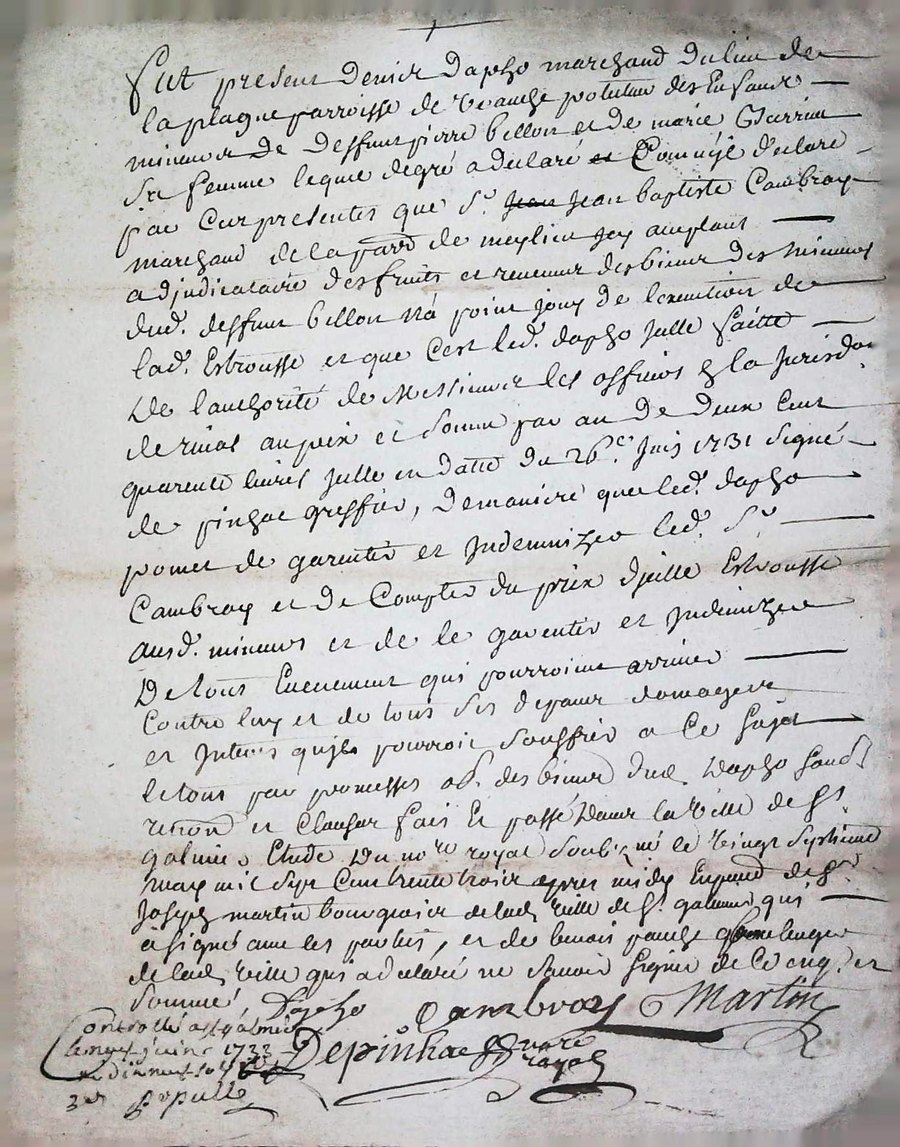 Fut present Denis Dapho marchand du lieu de
la plagne parroisse de veauche potuteur des Enfans
mineurs de deffunt pierre billon et de marie
sa femme lequel de gré a declaré et Comme declare
par Ces presentes que Sr. Jean Jean baptiste Cambray
marchand de la parr. de meylieu Jcy auxplant
adjudicataire des fruits et revenus des biens des mineurs
dud. deffunt billon n'a point jouy de lexecution de
lad. Estrousse et que Cest led. dapho Jcelle faitte
de l'authorité de Messieurs les officiers de la Jurisd.on
de rivas au prix et Somme par an de deux Cent
quarente livres Jcelle en datte du 26e. Juin 1731 Signé
de pinhac greffier, de maniere que led. dapho
promet de garentir et Jndemnizer led. Sr
Cambray et de Compter du prix d'jcelle Estrousse
ausd. mineurs et de le garentir et Jndemnizer
De tous Evenement qui pourroint arriver
Contre luy et de tous Ses depans domages
et Jnterets quil pourroit Souffrir a Ce Sujet
le tous par promesses ob. des biens dud. Dapho
renon. et Clauses fait et passé Dans la Ville de St.
galmier Etude Du nore royal Soubsigné le vingt Septieme
may mil Sept Cent trente trois apres midy En pnce de Sr
Joseph martin bourgeois de lad. ville de St. galmier qui
a Signé avec les parties, et de benoit boulenger
de lad. ville qui a declaré ne Scavoir Signer de Ce enq. et
Sommé
Dapho Cambray Martin
Controllé a St galmier
le neuf juin 1733
Depinhac nore
royal